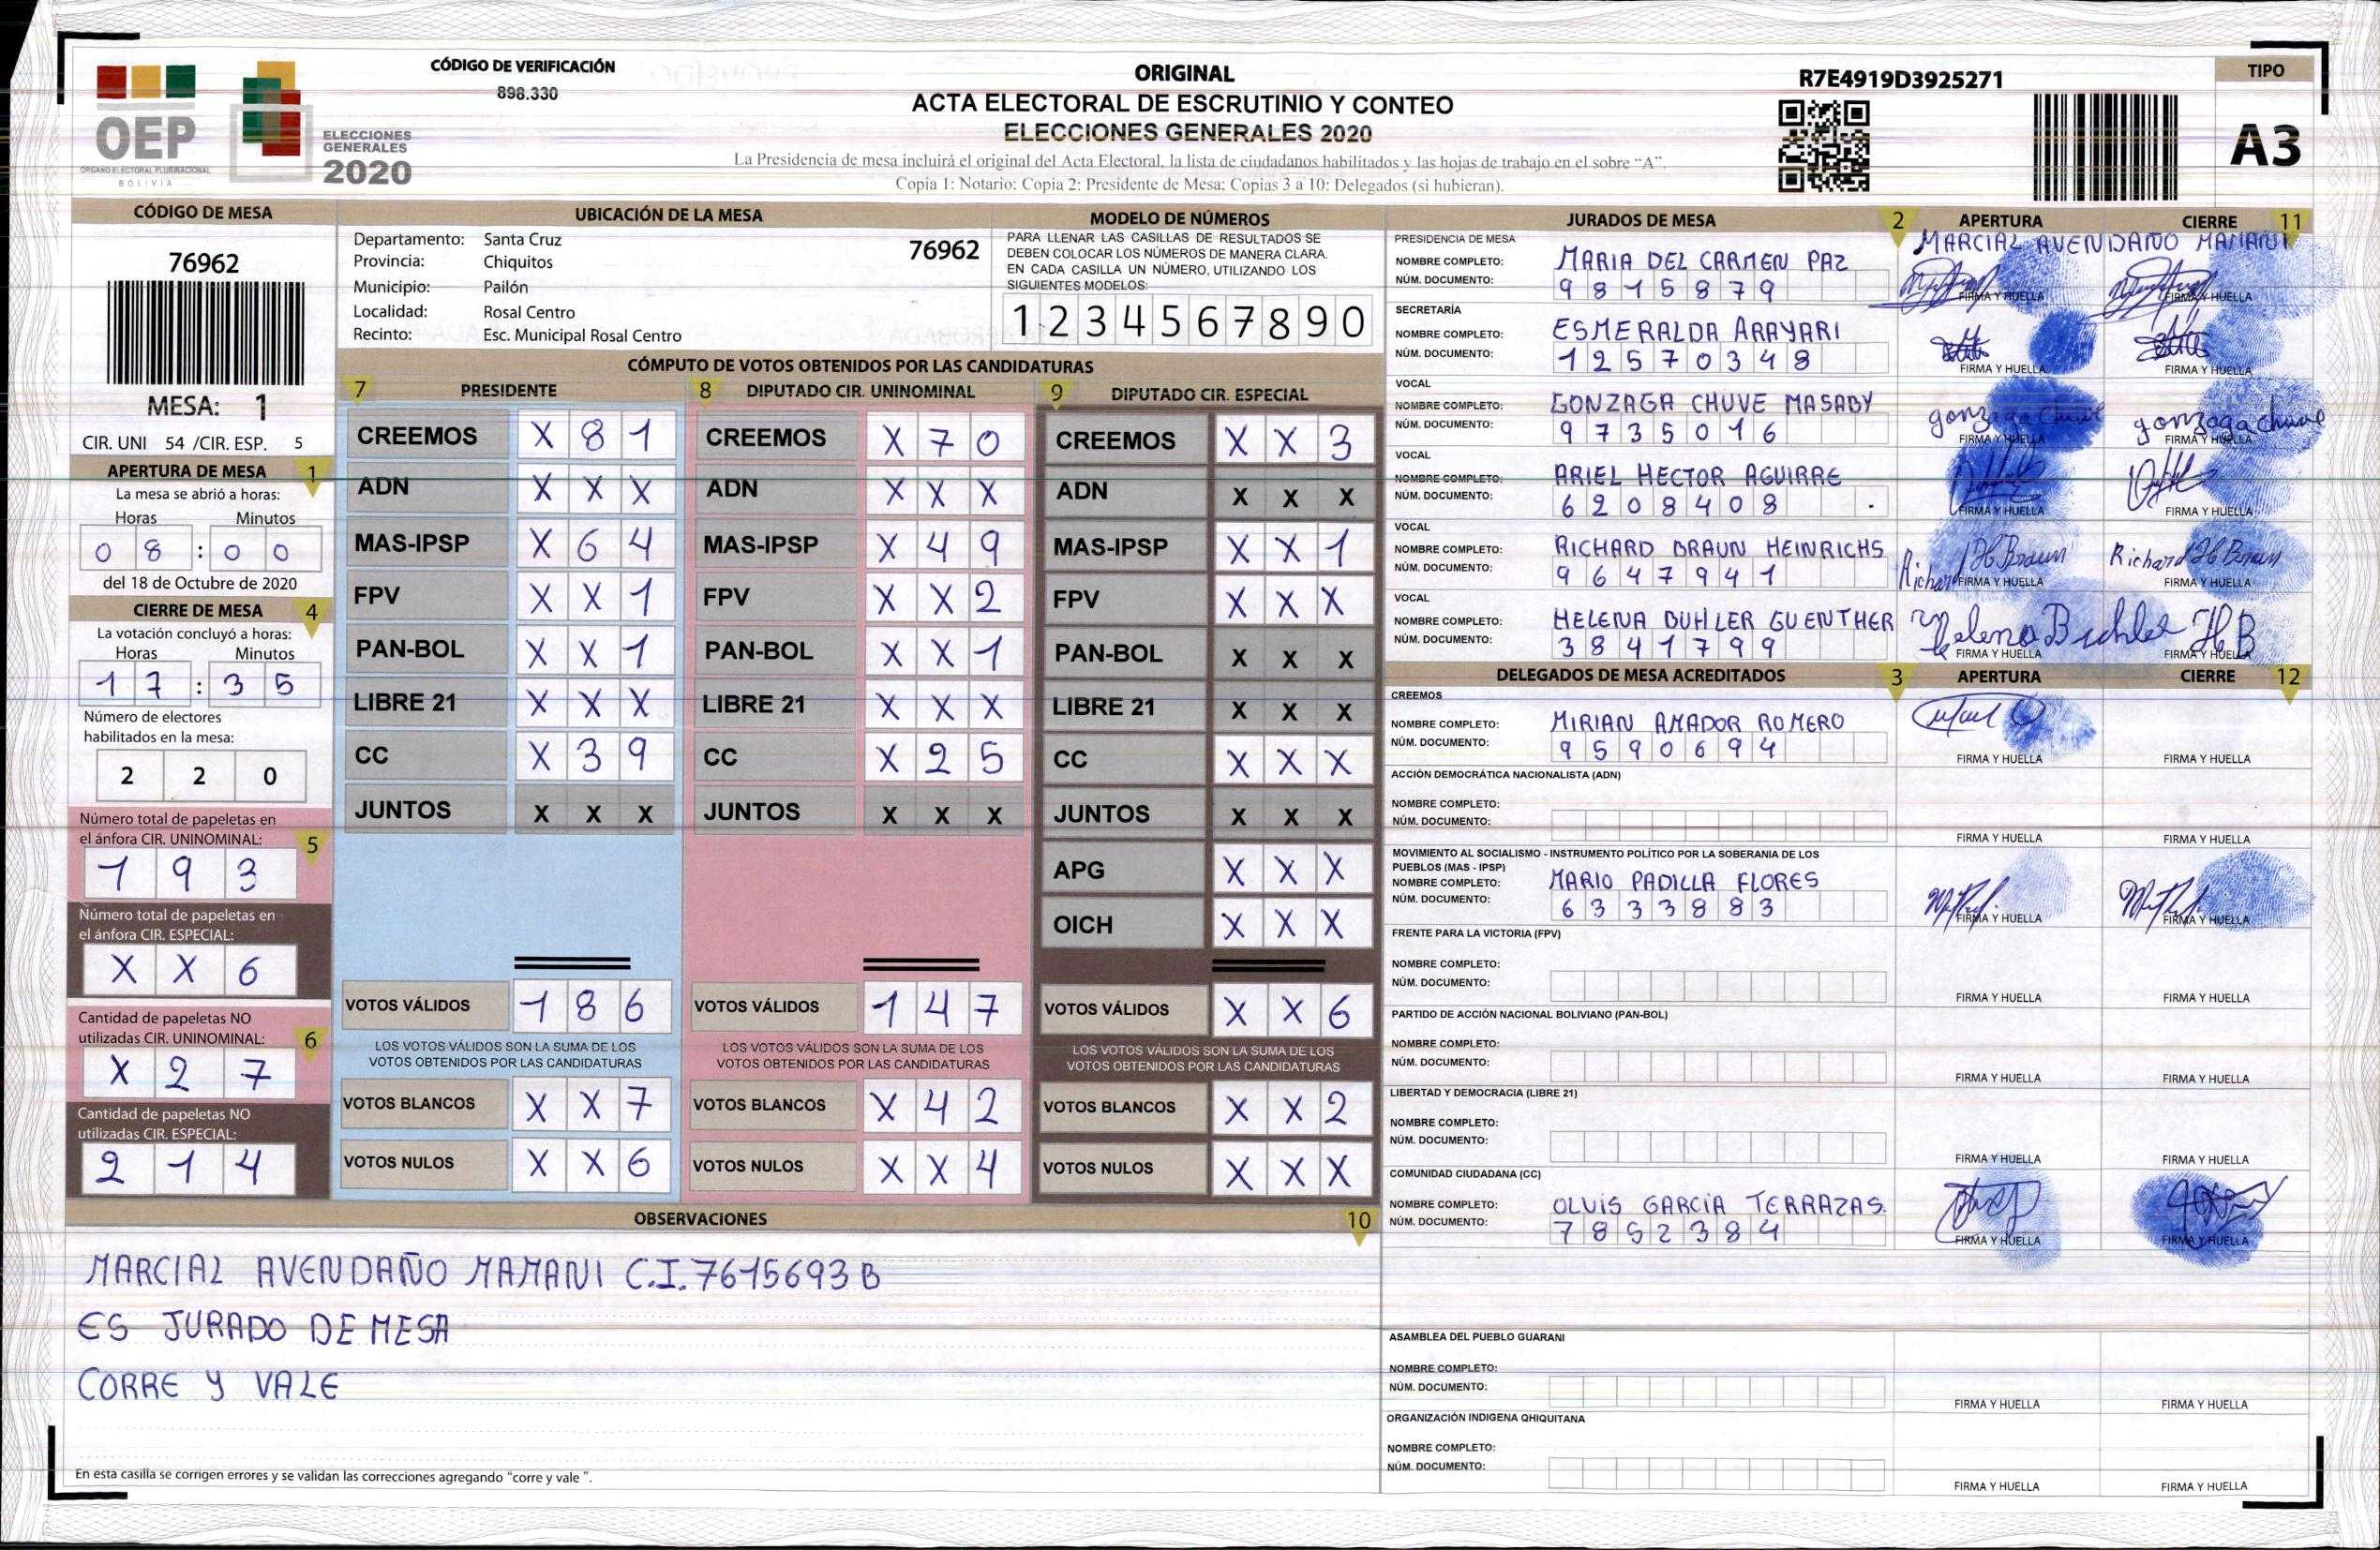 CÓDIGO DE VERIFICACIÓN
898.330
OEP
ÓRGANO ELECTORAL PLURINACIONAL
BOLIVIA
ELECCIONES
GENERALES
2020
ORIGINAL
ACTA ELECTORAL DE ESCRUTINIO Y CONTEO
ELECCIONES GENERALES 2020
La Presidencia de mesa incluirá el original del Acta Electoral, la lista de ciudadanos habilitados y las hojas de trabajo en el sobre “A”.
Copia 1: Notario: Copia 2: Presidente de Mesa: Copias 3 a 10: Delegados (si hubieran).
R7E4919D3925271
TIPO
A3
CÓDIGO DE MESA
76962
MESA: 1
CIR. UNI 54 /CIR. ESP. 5
APERTURA DE MESA 1
La mesa se abrió a horas:
Horas Minutos
0 8 : 0 0
del 18 de Octubre de 2020
CIERRE DE MESA 4
La votación concluyó a horas:
Horas Minutos
1 7 : 3 5
Número de electores
habilitados en la mesa:
2 2 0
Número total de papeletas en
el ánfora CIR. UNINOMINAL: 5
1 9 3
Número total de papeletas en
el ánfora CIR. ESPECIAL:
X X 6
Cantidad de papeletas NO
utilizadas CIR. UNINOMINAL: 6
X 2 7
Cantidad de papeletas NO
utilizadas CIR. ESPECIAL:
2 1 4
UBICACIÓN DE LA MESA
Departamento: Santa Cruz 76962
Provincia: Chiquitos
Municipio: Pailón
Localidad: Rosal Centro
Recinto: Esc. Municipal Rosal Centro
MODELO DE NÚMEROS
PARA LLENAR LAS CASILLAS DE RESULTADOS SE
DEBEN COLOCAR LOS NÚMEROS DE MANERA CLARA.
EN CADA CASILLA UN NÚMERO, UTILIZANDO LOS
SIGUIENTES MODELOS:
1 2 3 4 5 6 7 8 9 0
CÓMPUTO DE VOTOS OBTENIDOS POR LAS CANDIDATURAS
7 PRESIDENTE
CREEMOS X 8 1
ADN X X X
MAS-IPSP X 6 4
FPV X X 1
PAN-BOL X X 1
LIBRE 21 X X X
CC X 3 9
JUNTOS X X X
VOTOS VÁLIDOS 1 8 6
LOS VOTOS VÁLIDOS SON LA SUMA DE LOS
VOTOS OBTENIDOS POR LAS CANDIDATURAS
VOTOS BLANCOS X X 7
VOTOS NULOS X X 6
8 DIPUTADO CIR. UNINOMINAL
CREEMOS X 7 0
ADN X X X
MAS-IPSP X 4 9
FPV X X 2
PAN-BOL X X 1
LIBRE 21 X X X
CC X 2 5
JUNTOS X X X
VOTOS VÁLIDOS 1 4 7
LOS VOTOS VÁLIDOS SON LA SUMA DE LOS
VOTOS OBTENIDOS POR LAS CANDIDATURAS
VOTOS BLANCOS X 4 2
VOTOS NULOS X X 4
9 DIPUTADO CIR. ESPECIAL
CREEMOS X X 3
ADN X X X
MAS-IPSP X X 1
FPV X X X
PAN-BOL X X X
LIBRE 21 X X X
CC X X X
JUNTOS X X X
APG X X X
OICH X X X
VOTOS VÁLIDOS X X 6
LOS VOTOS VÁLIDOS SON LA SUMA DE LOS
VOTOS OBTENIDOS POR LAS CANDIDATURAS
VOTOS BLANCOS X X 2
VOTOS NULOS X X X
OBSERVACIONES 10
MARCIAL AVENDAÑO MAMANI C.I. 7615693 B
ES JURADO DE MESA
CORRE Y VALE
En esta casilla se corrigen errores y se validan las correcciones agregando “corre y vale ”.
JURADOS DE MESA 2 APERTURA CIERRE 11
MARCIAL AVENDAÑO MAMANI
PRESIDENCIA DE MESA
NOMBRE COMPLETO: MARIA DEL CARMEN PAZ
NÚM. DOCUMENTO: 9 8 1 5 8 7 9
FIRMA Y HUELLA FIRMA Y HUELLA
SECRETARÍA
NOMBRE COMPLETO: ESMERALDA ARAYARI
NÚM. DOCUMENTO: 1 2 5 7 0 3 4 8
FIRMA Y HUELLA FIRMA Y HUELLA
VOCAL
NOMBRE COMPLETO: GONZAGA CHUVE MASABY
NÚM. DOCUMENTO: 9 7 3 5 0 1 6
gonzaga chuve gonzaga chuve
FIRMA Y HUELLA FIRMA Y HUELLA
VOCAL
NOMBRE COMPLETO: ARIEL HECTOR AGUIRRE
NÚM. DOCUMENTO: 6 2 0 8 4 0 8
FIRMA Y HUELLA FIRMA Y HUELLA
VOCAL
NOMBRE COMPLETO: RICHARD BRAUN HEINRICHS
NÚM. DOCUMENTO: 9 6 4 7 9 4 1
Richard H Braun Richard H Braun
FIRMA Y HUELLA FIRMA Y HUELLA
VOCAL
NOMBRE COMPLETO: HELENA BUHLER GUENTHER
NÚM. DOCUMENTO: 3 8 4 1 7 9 9
Helena Buhler HB
FIRMA Y HUELLA FIRMA Y HUELLA
DELEGADOS DE MESA ACREDITADOS 3 APERTURA CIERRE 12
CREEMOS
NOMBRE COMPLETO: MIRIAN AMADOR ROMERO
NÚM. DOCUMENTO: 9 5 9 0 6 9 4
FIRMA Y HUELLA FIRMA Y HUELLA
ACCIÓN DEMOCRÁTICA NACIONALISTA (ADN)
NOMBRE COMPLETO:
NÚM. DOCUMENTO:
FIRMA Y HUELLA FIRMA Y HUELLA
MOVIMIENTO AL SOCIALISMO - INSTRUMENTO POLÍTICO POR LA SOBERANIA DE LOS
PUEBLOS (MAS - IPSP)
NOMBRE COMPLETO: MARIO PADILLA FLORES
NÚM. DOCUMENTO: 6 3 3 3 8 8 3
FIRMA Y HUELLA FIRMA Y HUELLA
FRENTE PARA LA VICTORIA (FPV)
NOMBRE COMPLETO:
NÚM. DOCUMENTO:
FIRMA Y HUELLA FIRMA Y HUELLA
PARTIDO DE ACCIÓN NACIONAL BOLIVIANO (PAN-BOL)
NOMBRE COMPLETO:
NÚM. DOCUMENTO:
FIRMA Y HUELLA FIRMA Y HUELLA
LIBERTAD Y DEMOCRACIA (LIBRE 21)
NOMBRE COMPLETO:
NÚM. DOCUMENTO:
FIRMA Y HUELLA FIRMA Y HUELLA
COMUNIDAD CIUDADANA (CC)
NOMBRE COMPLETO: OLVIS GARCIA TERRAZAS.
NÚM. DOCUMENTO: 7 8 5 2 3 8 4
FIRMA Y HUELLA FIRMA Y HUELLA
ASAMBLEA DEL PUEBLO GUARANI
NOMBRE COMPLETO:
NÚM. DOCUMENTO:
FIRMA Y HUELLA FIRMA Y HUELLA
ORGANIZACIÓN INDIGENA QHIQUITANA
NOMBRE COMPLETO:
NÚM. DOCUMENTO:
FIRMA Y HUELLA FIRMA Y HUELLA